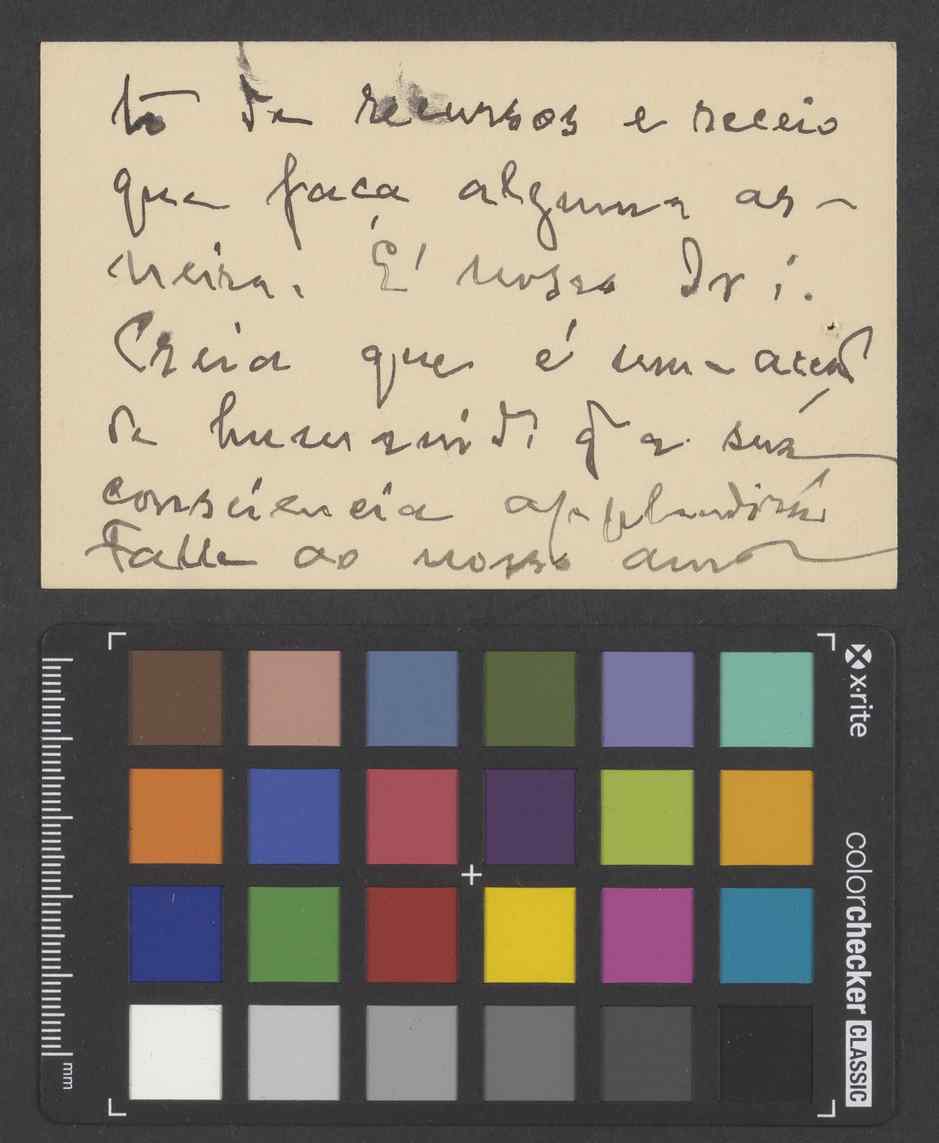 to de recursos e receio
que faça alguma as-
neira. É nosso
Creia que é uma acção
de humanid.e q a sua
consciencia applaudirá
Falle ao nosso
x·rite
colorchecker CLASSIC
mm